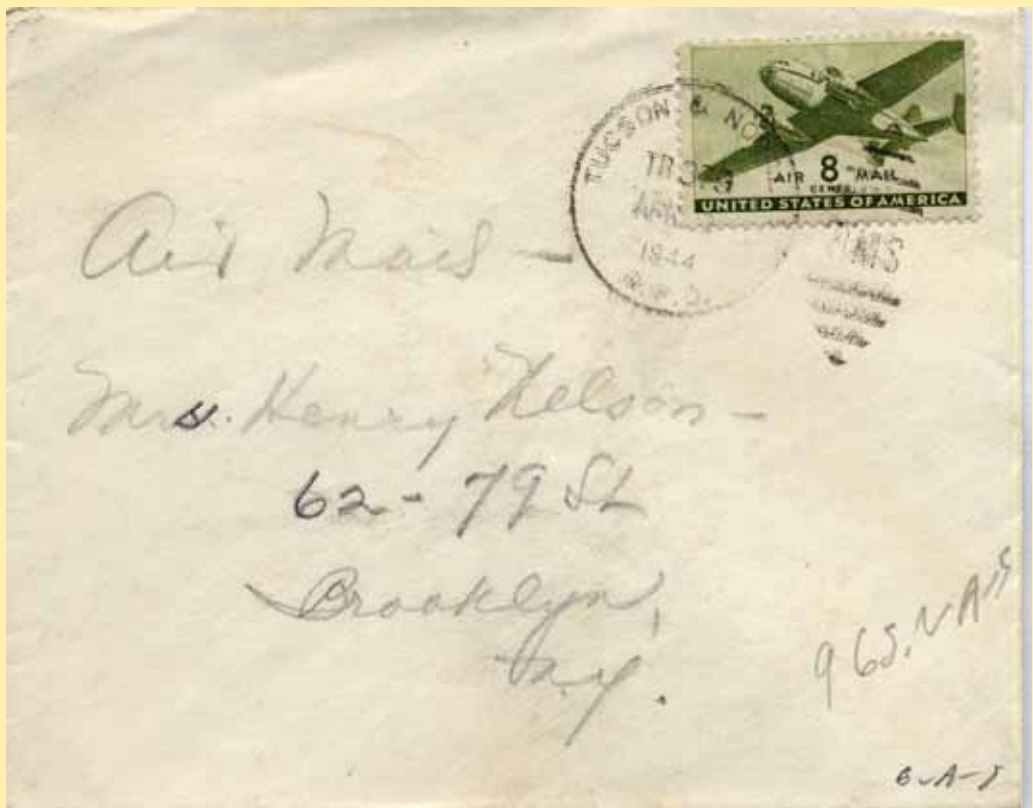 TUCSON & NO
TR 3
1944
R.P.O.
AIR 8 MAIL
CENTS
UNITED STATES OF AMERICA
RMS
Air Mail -
Mrs. Henry Nelson -
62 - 79 St
Brooklyn,
N.Y.
B-A-1